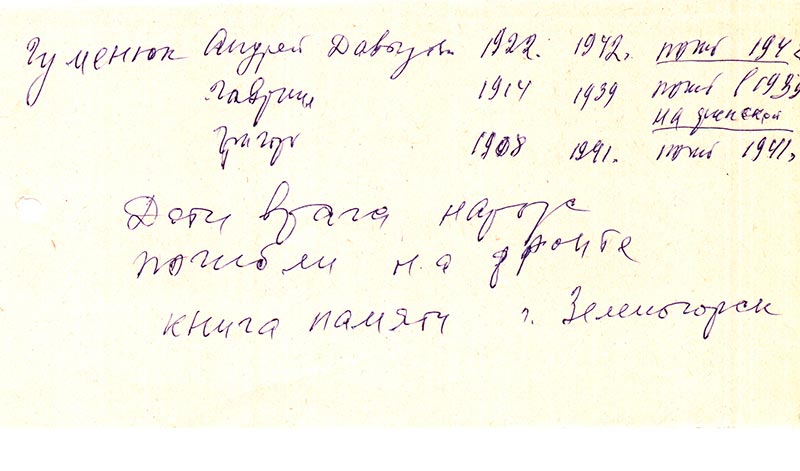 Гуменюк Андрей Давыдов. 1922. 1942. погиб 194
Гаврил 1914 1939 погиб в 1939
на финской
Григор 1908 1941. погиб 1941г
Дети врага народ
погибли на фронте
книга памяти г. Зеленогорск